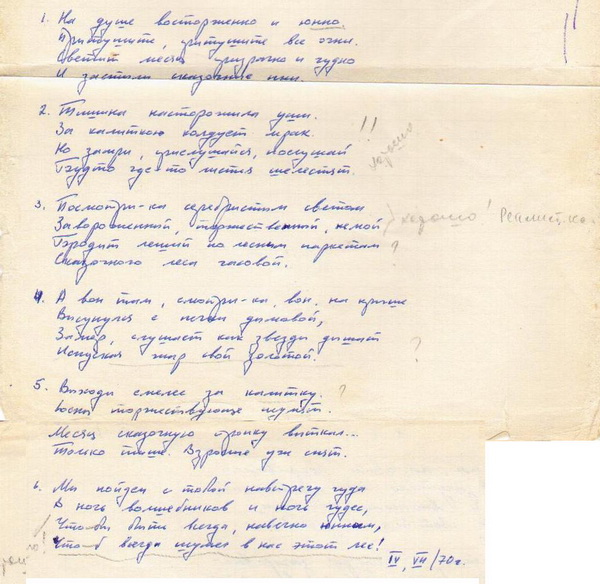 1. На душе восторженно и юнно.
Притушите, притушите все огни.
Светит месяц призрачно и чудно
И застыли сказочные пни.
2. Тишина насторожила уши.
За калиткою колдует мрак.
Но замри, прислушайся, послушай
Будто где-то листья шелестят.
!!
хорошо
3. Посмотри-ка серебристым светом
Завороженный, торжественный, немой
Бродит леший по лесным паркетам
?
Сказочного леса часовой.
хорошо! Реалист-ка.
4. А вон там, смотри-ка, вон, на крыше
Высунулся с печки домовой,
Замер, слушает как звезды дышат
Испуская жар свой золотой.
?
5. Выходи смелее за калитку.
?
Сосны торжествующе шумят.
Месяц сказочную тропку выткал...
Только тише. Взрослые уж спят.
6. Мы пойдем с тобой навстречу чуда
В ночь волшебников и ночь чудес,
Что бы быть всегда, навечно юным,
Что-б всегда шумел в нас этот лес!
IV, VII/70г.